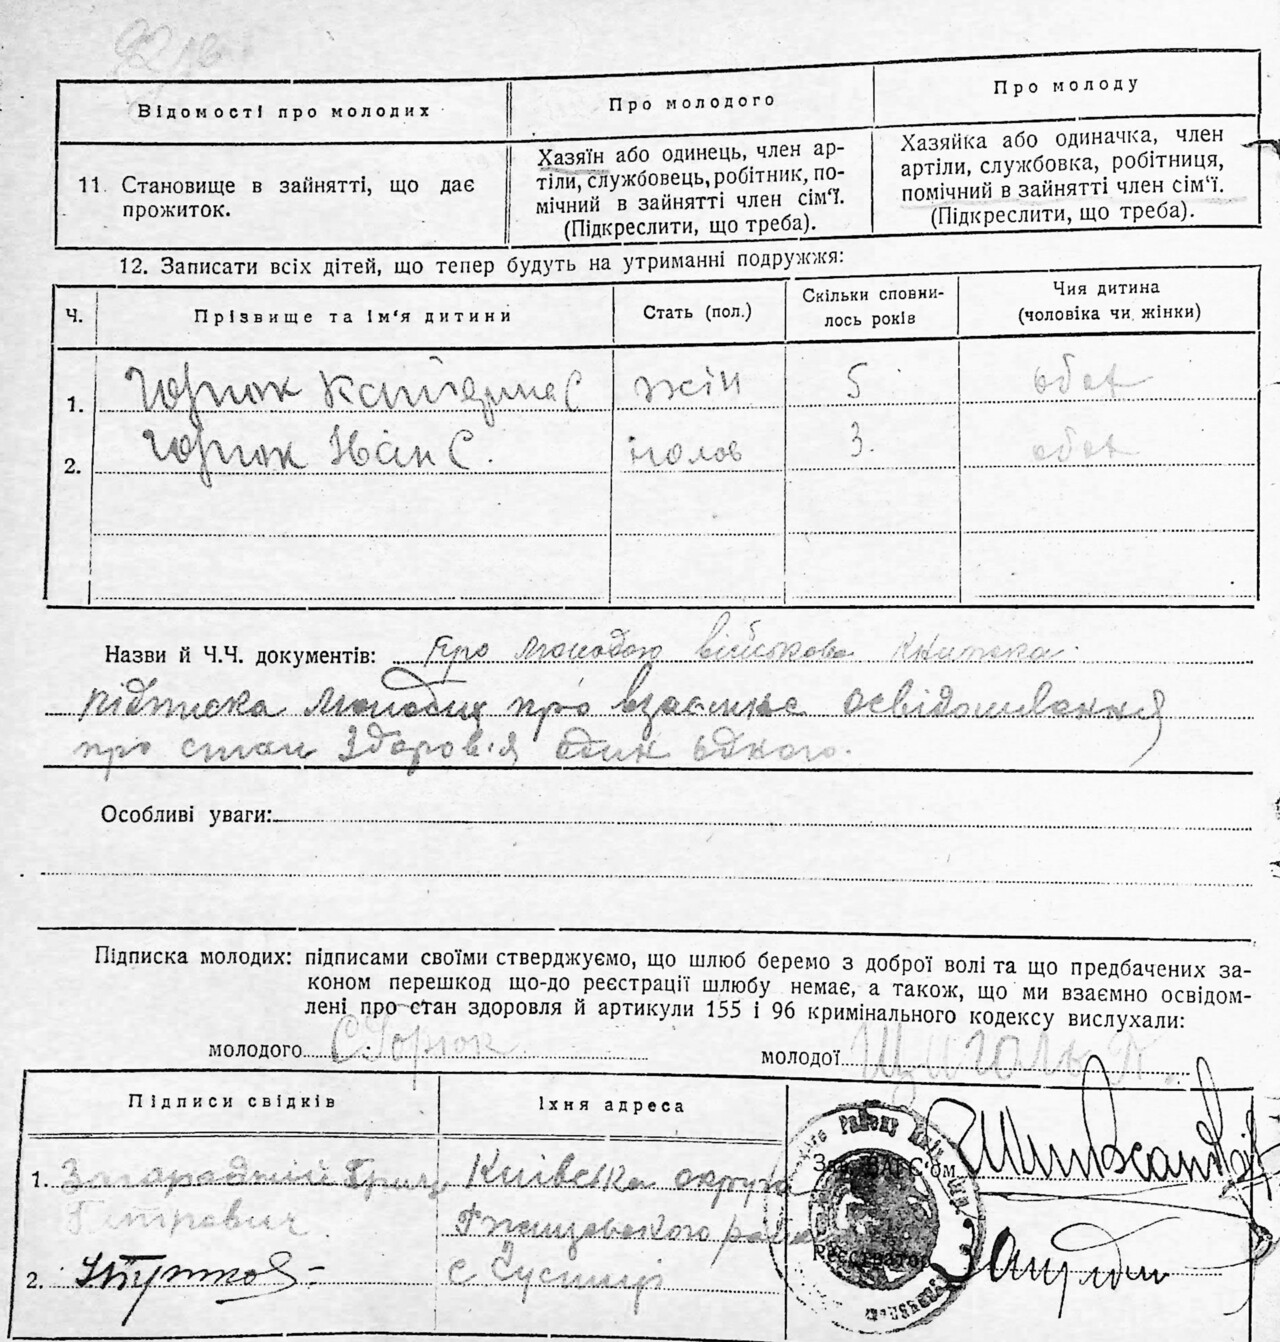 Відомості про молодих
Про молодого
Про молоду
11. Становище в зайнятті, що дає
прожиток.
Хазяїн або одинець, член ар-
тілі, службовець, робітник, по-
мічний в зайнятті член сім'ї.
(Підкреслити, що треба).
Хазяйка або одиначка, член
артіли, службовка, робітниця,
помічний в зайнятті член сім'ї.
(Підкреслити, що треба).
12. Записати всіх дітей, що тепер будуть на утриманні подружжя:
Ч.
Прізвище та ім'я дитини
Стать (пол.)
Скільки сповни-
лось років
Чия дитина
(чоловіка чи жінки)
1. Катерина С жін 5 обох
2. Іван С. чолов 3. обох
Назви й Ч.Ч. документів: Про молодого військова книжка
підписка молодих про взаємне освідомлення
про стан здоров'я один одного.
Особливі уваги:
Підписка молодих: підписами своїми стверджуємо, що шлюб беремо з доброї волі та що предбачених за-
коном перешкод що-до реєстрації шлюбу немає, а також, що ми взаємно освідом-
лені про стан здоров'я й артикули 155 і 96 кримінального кодексу вислухали:
молодого
молодої
Підписи свідків
Їхня адреса
1.
Київська округа
Петрович
2.
с
Зав. ЗАГС'ом
Реєстратор